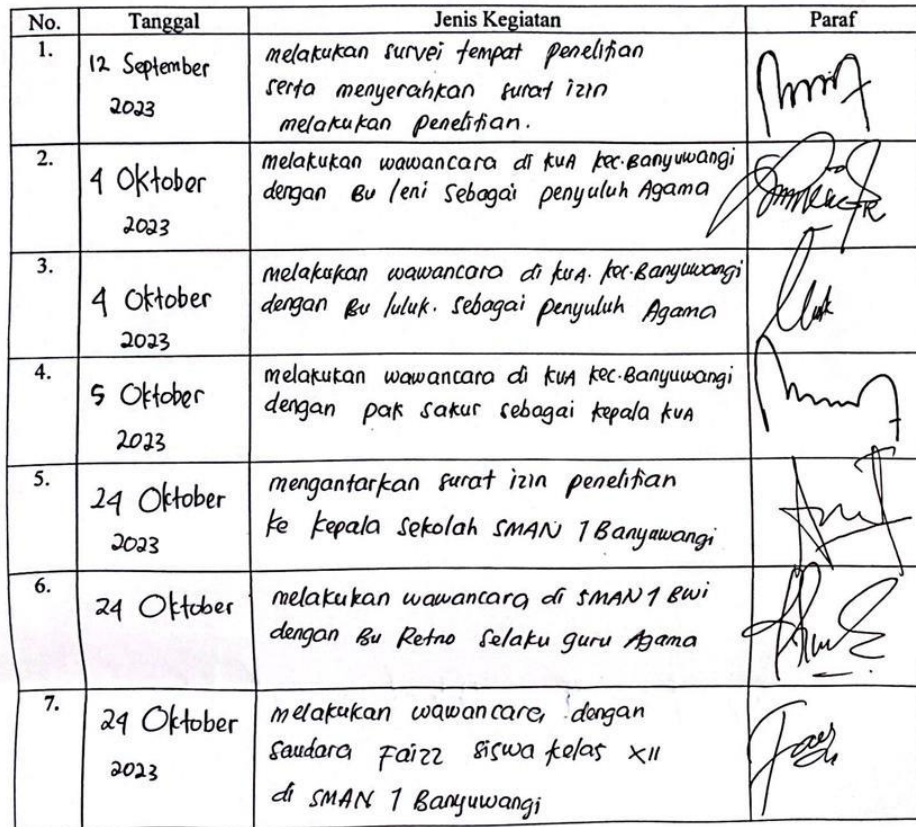 No. Tanggal Jenis Kegiatan Paraf
1. 12 September 2023 melakukan survei tempat penelitian
serta menyerahkan surat izin
melakukan penelitian.
2. 4 Oktober 2023 melakukan wawancara di KUA Kec. Banyuwangi
dengan Bu leni sebagai penyuluh Agama
3. 4 Oktober 2023 melakukan wawancara di KUA. Kec. Banyuwangi
dengan Bu luluk. sebagai penyuluh Agama
4. 5 Oktober 2023 melakukan wawancara di KUA Kec. Banyuwangi
dengan pak sakur sebagai kepala KUA
5. 24 Oktober 2023 mengantarkan surat izin penelitian
ke kepala sekolah SMAN 1 Banyuwangi
6. 24 Oktober melakukan wawancara di SMAN 1 Bwi
dengan Bu Retno selaku guru Agama
7. 24 Oktober 2023 melakukan wawancara, dengan
saudara Faizz siswa kelas XII
di SMAN 1 Banyuwangi